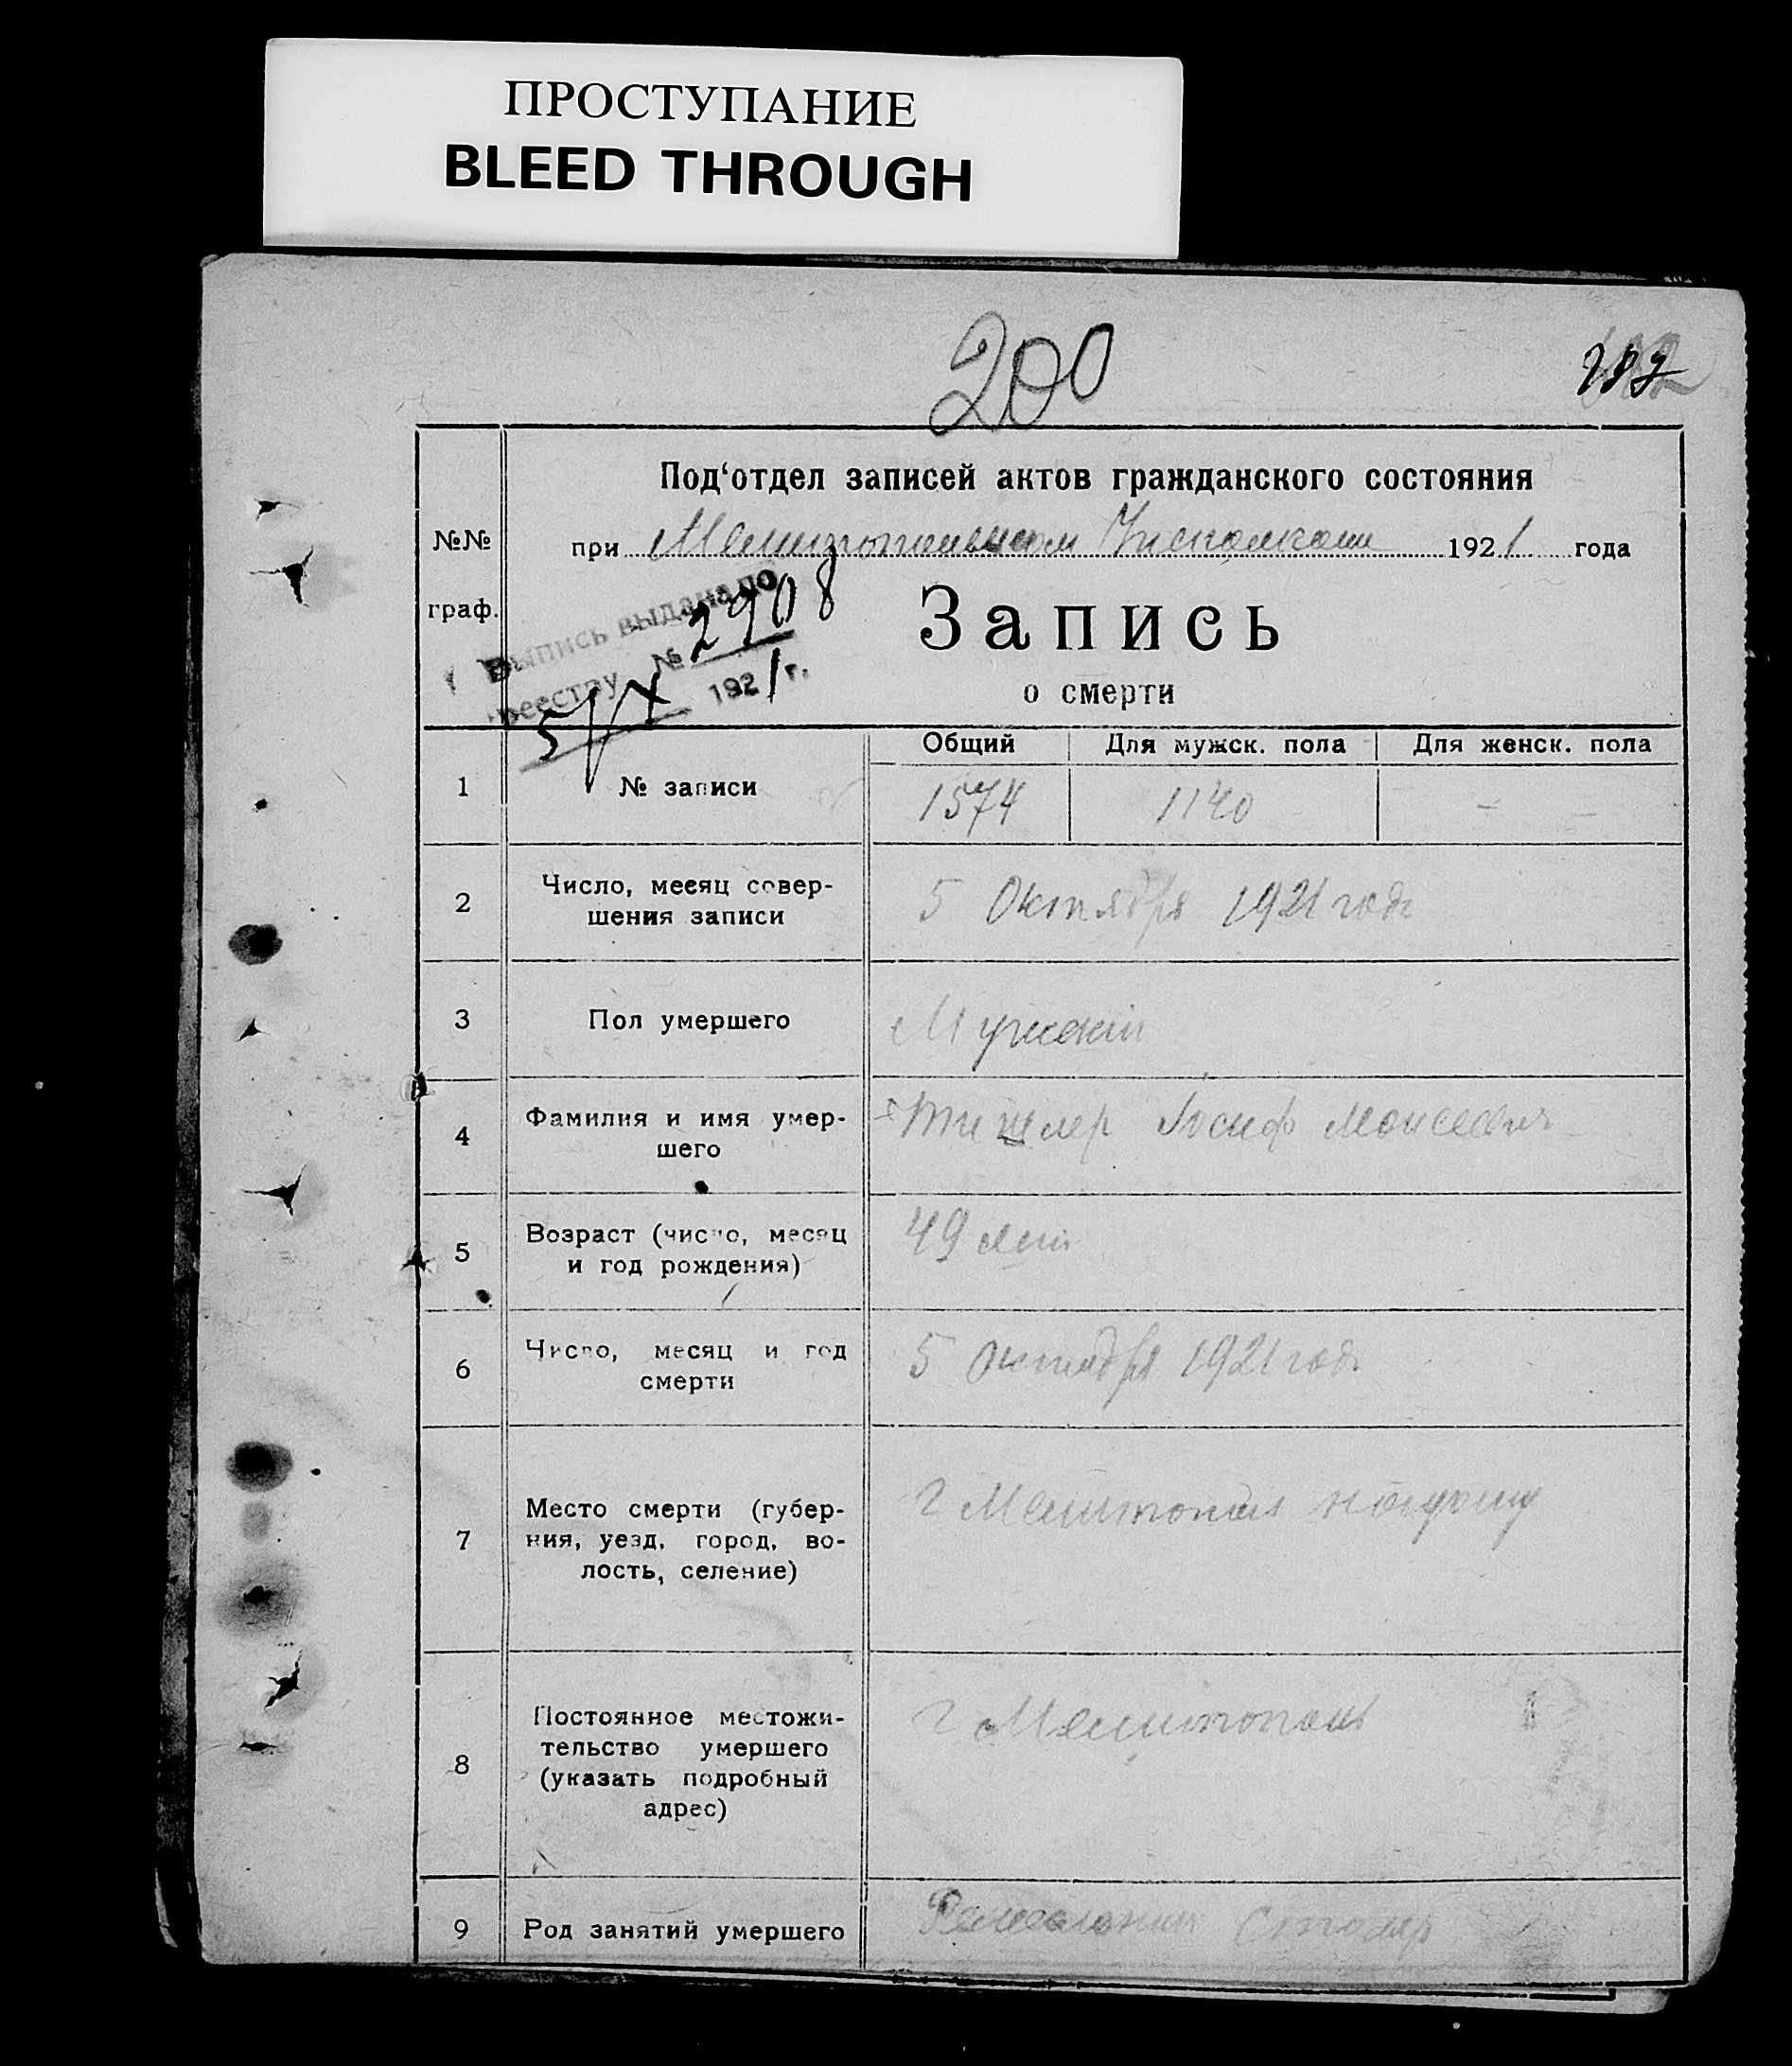 ПРОСТУПАНИЕ
BLEED THROUGH
200
Под‘отдел записей актов гражданского состояния
№№ граф.
при Мелитопольском Исполкоме 1921 года
Выпись выдана по
реестру № 2908
5/X 1921 г.
Запись
о смерти
Общий Для мужск. пола Для женск. пола
1 № записи 1574 1140 -
2 Число, месяц совер-
шения записи 5 Октября 1921 года
3 Пол умершего Мужскій
4 Фамилия и имя умер-
шего Тишлер Іосиф Моисеевич
5 Возраст (число, месяц
и год рождения) 49 лет
6 Число, месяц и год
смерти 5 Октября 1921 года
7 Место смерти (губер-
ния, уезд, город, во-
лость, селение) г Мелитополь
8 Постоянное местожи-
тельство умершего
(указать подробный
адрес) г Мелитополь
9 Род занятий умершего Столяр